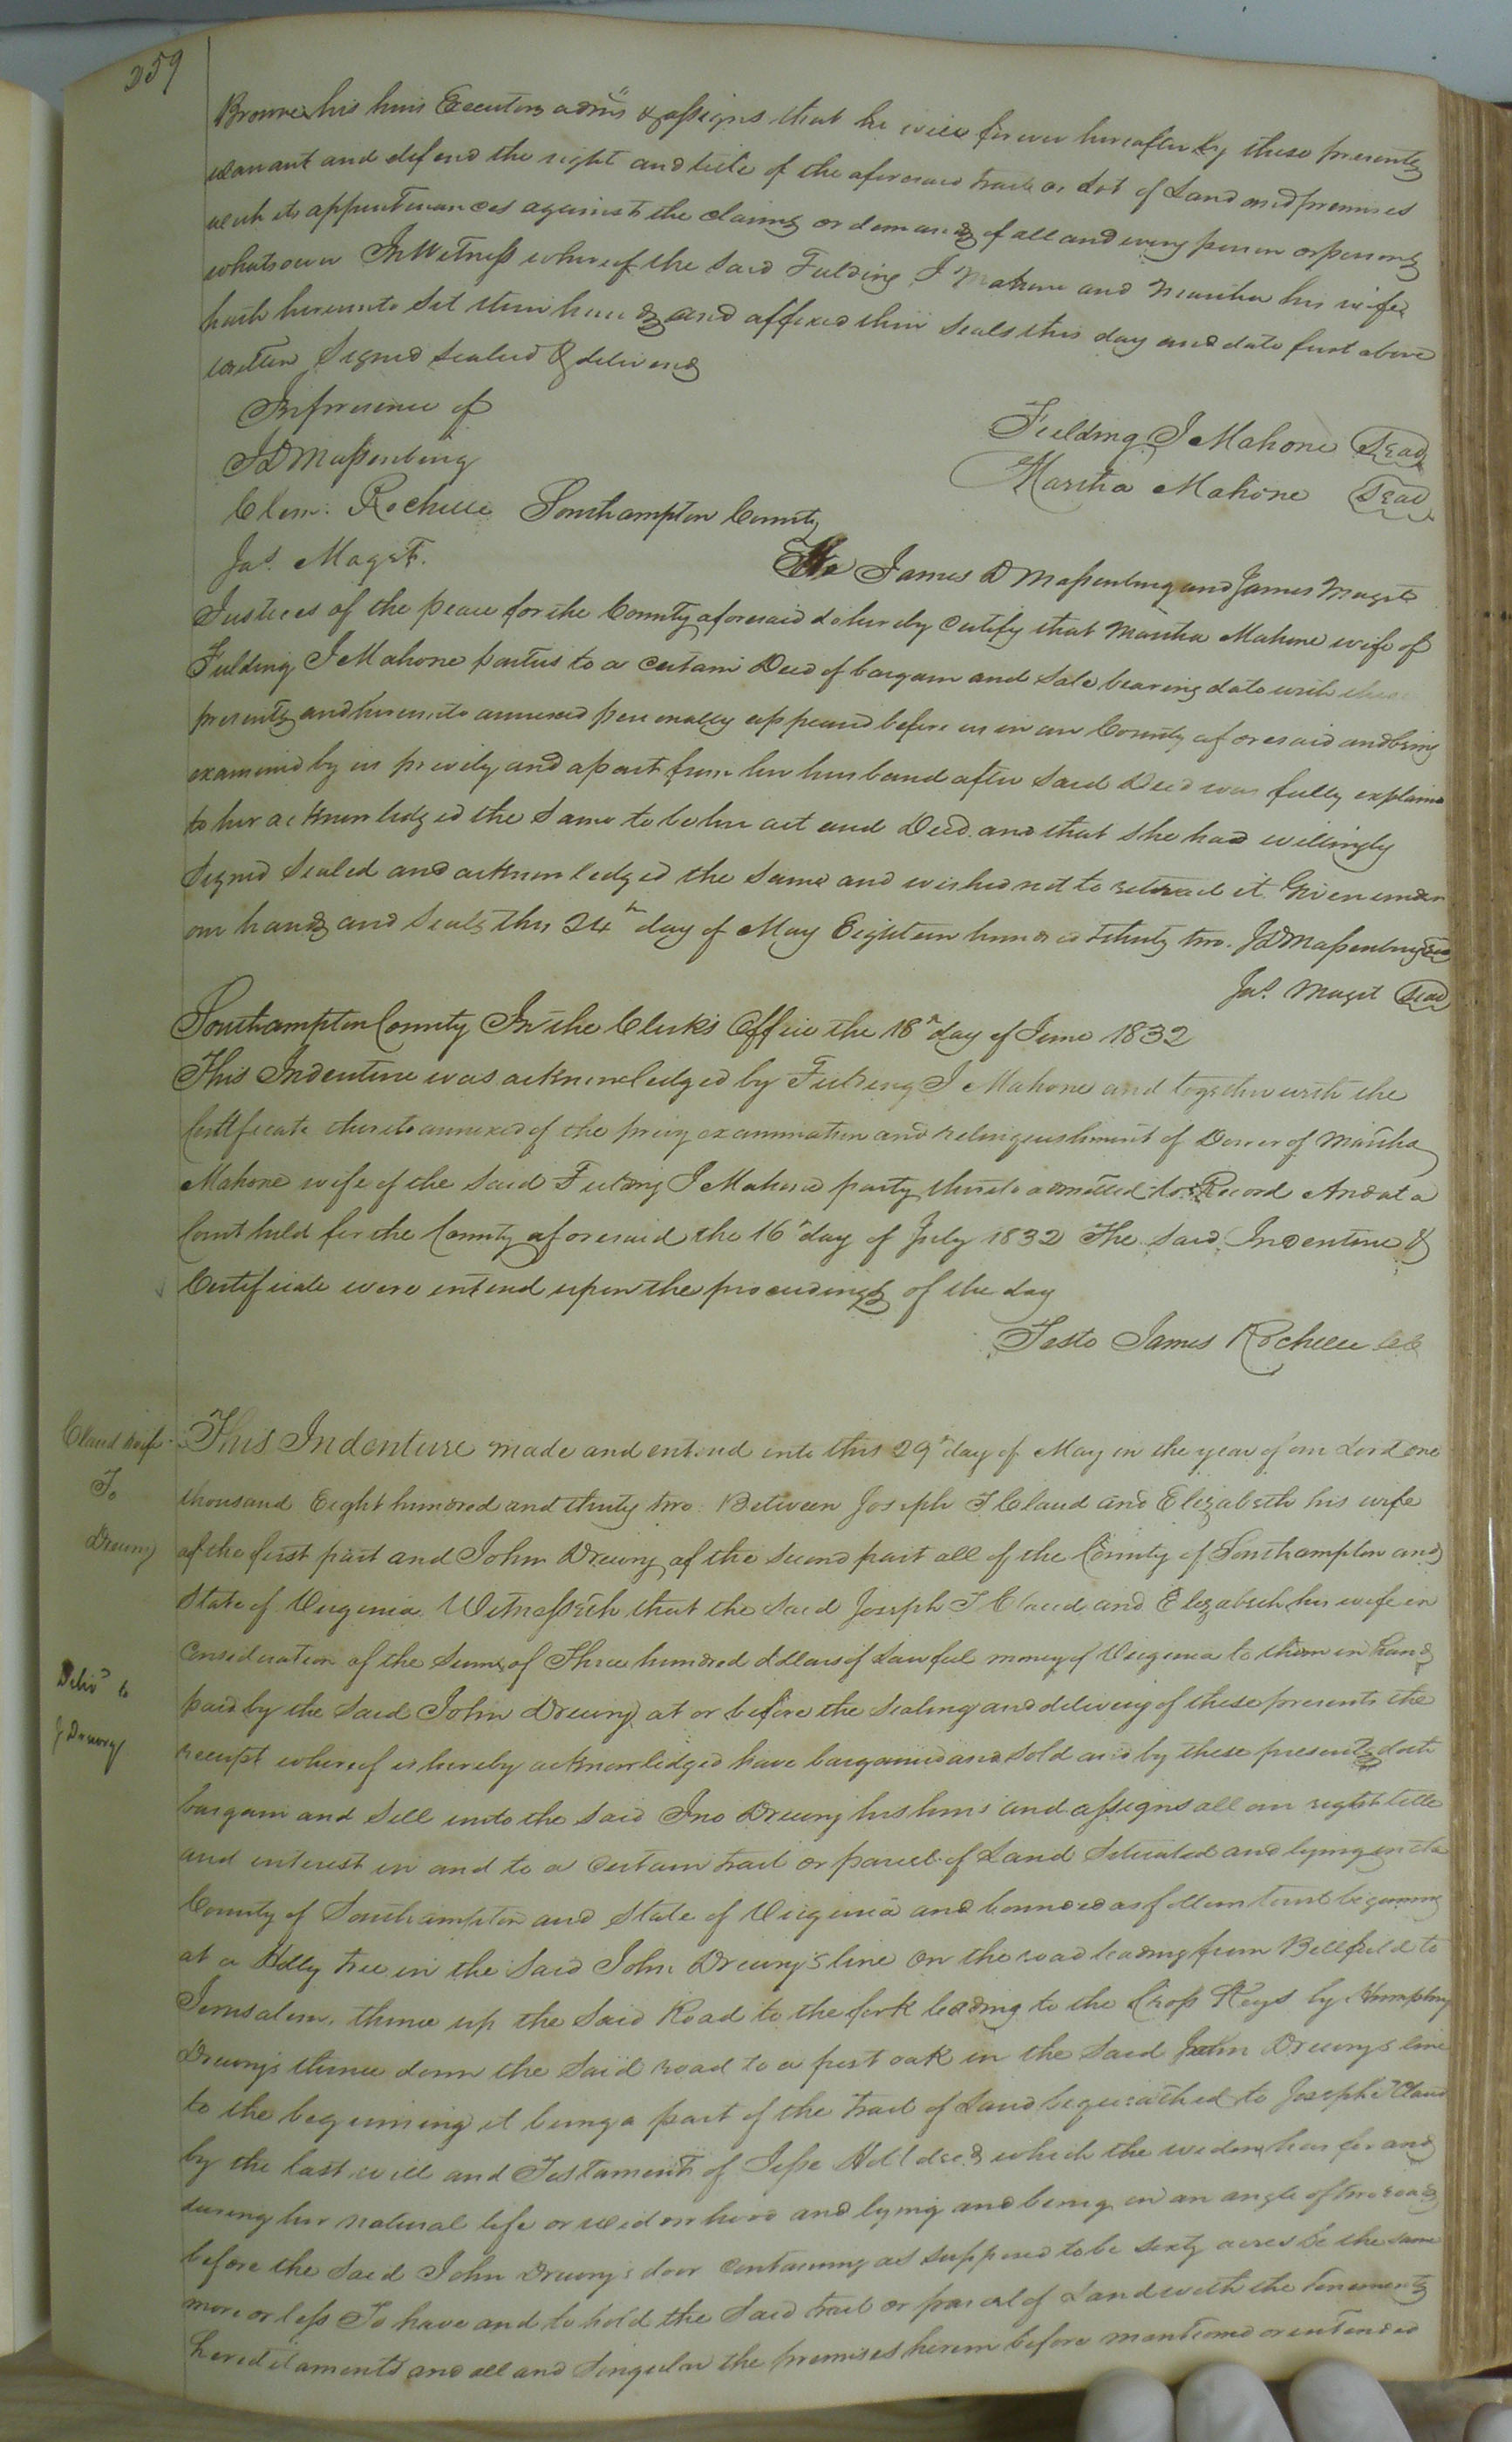 359
Browne his heirs Executors admrs & assigns that he will forever hereafter by these presents
warrant and defend the right and title of the aforesaid tract or Lot of Land and premises
with its appurtenances against the claims or demands of all and every person or persons
whatsoever In Witness whereof the said Fielding J Mahone and Martha his wife
hath hereunto Set their hands and affixed their Seals this day and date first above
written Signed Sealed & delivered
In presence of
JD Massenburg
Fielding J Mahone Seal
Clem: Rochelle
Martha Mahone Seal
Jas. Maget.
Southampton County
We James D Massenburg and James Maget
Justices of the peace for the County aforesaid do hereby certify that Martha Mahone wife of
Fielding J Mahone parties to a certain Deed of bargain and Sale bearing date with these
presents and hereunto annexed personally appeared before us in our County aforesaid and being
examined by us privily and apart from her husband after Said Deed was fully explained
to her acknowledged the Same to be her act and Deed and that She had willingly
Signed Sealed and acknowledged the Same and wished not to retract it Given under
our hands and Seals this 24th day of May Eighteen hundred & thirty two. JD Massenburg Seal
Jas. Maget Seal
Southampton County In the Clerks Office the 18th day of June 1832
This Indenture was acknowledged by Fielding J Mahone and together with the
Certificate thereto annexed of the privy examination and relinquishment of Dower of Martha
Mahone wife of the Said Fielding J Mahone party thereto admitted to Record And at a
Court held for the County aforesaid the 16th day of July 1832 The Said Indenture &
Certificate were entered upon the proceedings of the day
Teste James Rochelle CC
Claud & wife
To
Drewry
This Indenture made and entered into this 29th day of May in the year of our Lord one
thousand Eight hundred and thirty two Between Joseph T Claud and Elizabeth his wife
of the first part and John Drewry of the Second part all of the County of Southampton and
State of Virginia Witnesseth that the Said Joseph T Claud and Elizabeth his wife in
Consideration of the Sum of Three hundred dollars of Lawful money of Virginia to them in hand
Delivd to
J Drewry
paid by the Said John Drewry at or before the Sealing and delivery of these presents the
receipt whereof is hereby acknowledged have bargained and Sold and by these presents doth
bargain and Sell unto the Said Jno Drewry his heirs and assigns all our right title
and interest in and to a Certain tract or parcel of Land Situated and lying in the
County of Southampton and State of Virginia and bounded as follows towit begining
at a Holly tree in the Said John Drewry's line on the road leading from Bellfield to
Jerusalem, thence up the Said Road to the fork leading to the Cross Keys by Humphry
Drewry's thence down the Said road to a post oak in the Said John Drewrys line
to the begining it being a part of the tract of Land bequeathed to Joseph T Claud
by the last will and Testament of Jesse Holt decd which the widow has for and
during her natural life or widowhood and lying and being in an angle of two roads
before the Said John Drewry's door Containing as supposed to be sixty acres be the same
more or less To have and to hold the Said tract or parcel of Land with the tenements
hereditaments and all and Singular the premises herein before mentioned or intended